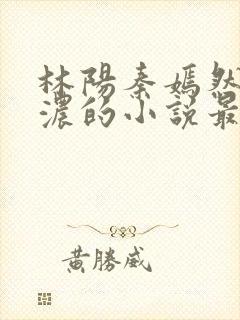 林陽秦嫣然
濃的小說最
黃勝威